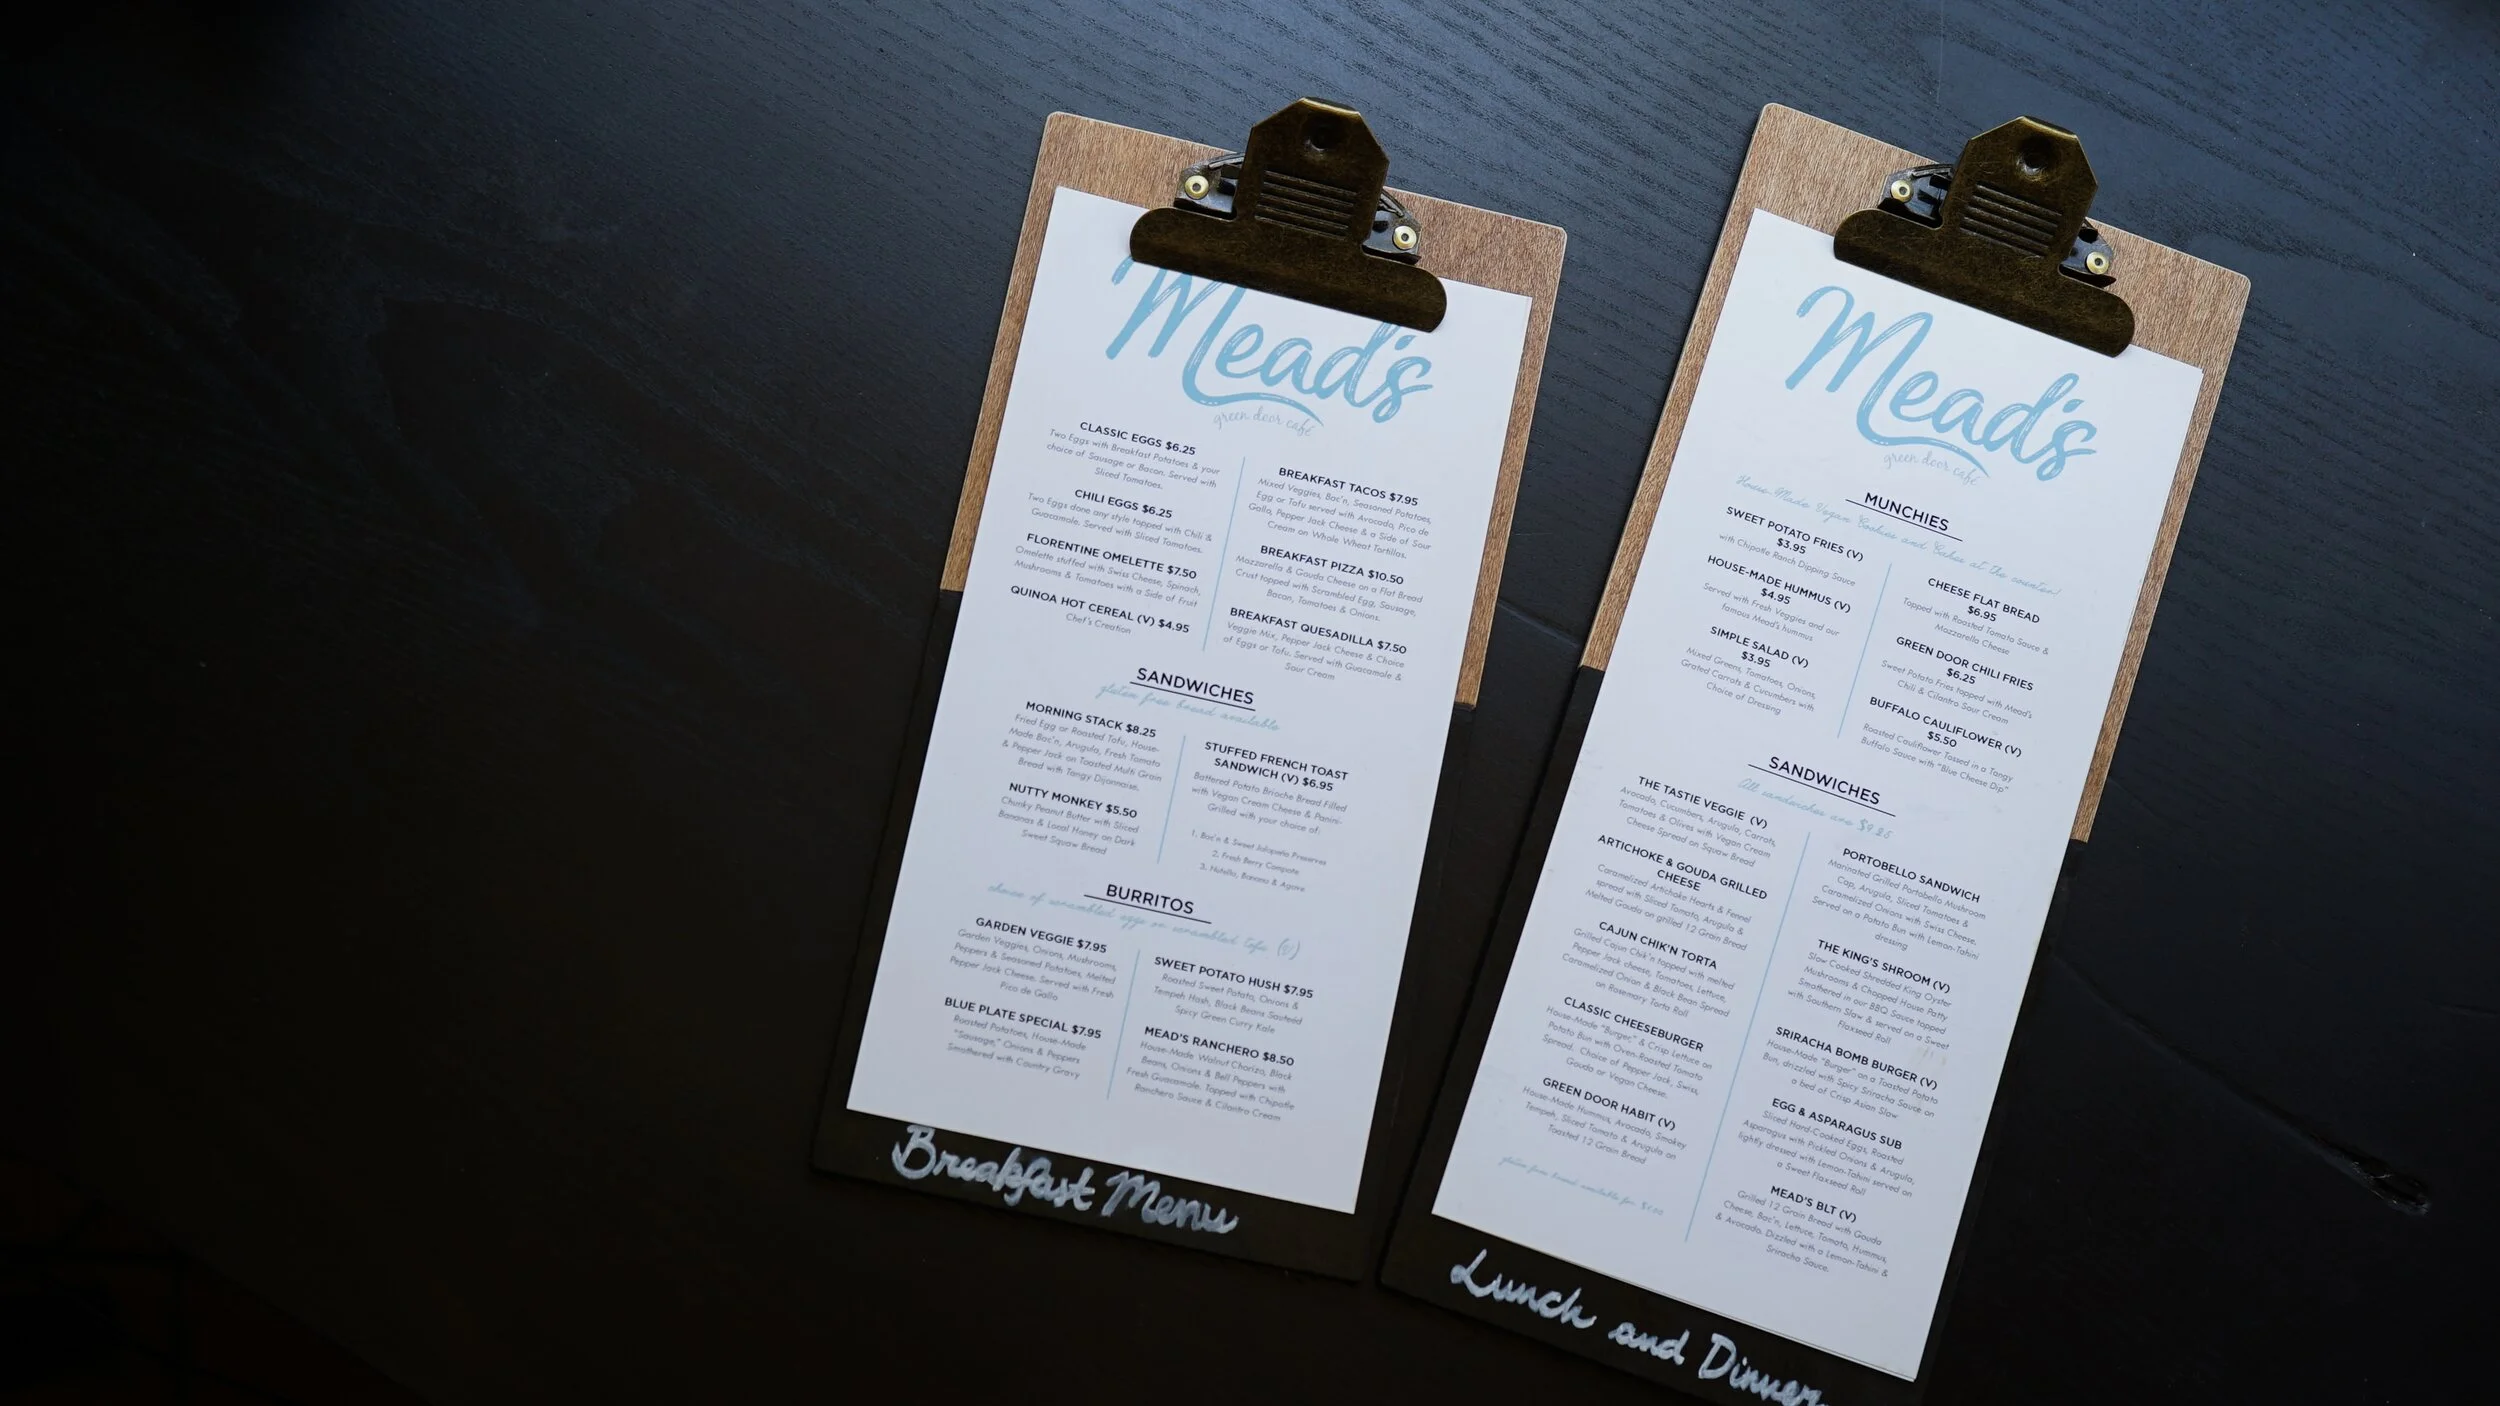 Mead's
green door café
CLASSIC EGGS $6.25
Two Eggs with Breakfast Potatoes & your
choice of Sausage or Bacon. Served with
Sliced Tomatoes.
CHILI EGGS $6.25
Two Eggs done any style topped with Chili &
Guacamole. Served with Sliced Tomatoes.
FLORENTINE OMELETTE $7.50
Omelette stuffed with Swiss Cheese, Spinach,
Mushrooms & Tomatoes with a Side of Fruit
QUINOA HOT CEREAL (V) $4.95
Chef's Creation
BREAKFAST TACOS $7.95
Mixed Veggies, Bac'n, Seasoned Potatoes,
Egg or Tofu served with Avocado, Pico de
Gallo, Pepper Jack Cheese & a Side of Sour
Cream on Whole Wheat Tortillas.
BREAKFAST PIZZA $10.50
Mozzarella & Gouda Cheese on a Flat Bread
Crust topped with Scrambled Egg, Sausage,
Bacon, Tomatoes & Onions.
BREAKFAST QUESADILLA $7.50
Veggie Mix, Pepper Jack Cheese & Choice
of Eggs or Tofu. Served with Guacamole &
Sour Cream
SANDWICHES
gluten free bread available
MORNING STACK $8.25
Fried Egg or Roasted Tofu, House-
Made Bac'n, Arugula, Fresh Tomato
& Pepper Jack on Toasted Multi Grain
Bread with Tangy Dijonnaise.
NUTTY MONKEY $5.50
Chunky Peanut Butter with Sliced
Bananas & Local Honey on Dark
Sweet Squaw Bread
STUFFED FRENCH TOAST
SANDWICH (V) $6.95
Battered Potato Brioche Bread Filled
with Vegan Cream Cheese & Panini-
Grilled with your choice of:
1. Bac'n & Sweet Jalapeño Preserves
2. Fresh Berry Compote
3. Nutella, Banana & Agave
BURRITOS
choice of scrambled eggs or scrambled tofu (v)
GARDEN VEGGIE $7.95
Garden Veggies, Onions, Mushrooms,
Peppers & Seasoned Potatoes, Melted
Pepper Jack Cheese. Served with Fresh
Pico de Gallo
BLUE PLATE SPECIAL $7.95
Roasted Potatoes, House-Made
"Sausage," Onions & Peppers
Smothered with Country Gravy
SWEET POTATO HUSH $7.95
Roasted Sweet Potato, Onions &
Tempeh Hash, Black Beans Sautéed
Spicy Green Curry Kale
MEAD'S RANCHERO $8.50
House-Made Walnut Chorizo, Black
Beans, Onions & Bell Peppers with
Fresh Guacamole. Topped with Chipotle
Ranchero Sauce & Cilantro Cream
Breakfast Menu
Mead's
green door café
MUNCHIES
House-Made Vegan Cookies and Cakes at the counter!
SWEET POTATO FRIES (V)
$3.95
with Chipotle Ranch Dipping Sauce
HOUSE-MADE HUMMUS (V)
$4.95
Served with Fresh Veggies and our
famous Mead's hummus
SIMPLE SALAD (V)
$3.95
Mixed Greens, Tomatoes, Onions,
Grated Carrots & Cucumbers with
Choice of Dressing
CHEESE FLAT BREAD
$6.95
Topped with Roasted Tomato Sauce &
Mozzarella Cheese
GREEN DOOR CHILI FRIES
$6.25
Sweet Potato Fries topped with Mead's
Chili & Cilantro Sour Cream
BUFFALO CAULIFLOWER (V)
$5.50
Roasted Cauliflower Tossed in a Tangy
Buffalo Sauce with "Blue Cheese Dip"
SANDWICHES
All sandwiches are $9.25
THE TASTIE VEGGIE (V)
Avocado, Cucumbers, Arugula, Carrots,
Tomatoes & Olives with Vegan Cream
Cheese Spread on Squaw Bread
ARTICHOKE & GOUDA GRILLED
CHEESE
Caramelized Artichoke Hearts & Fennel
spread with Sliced Tomato, Arugula &
Melted Gouda on grilled 12 Grain Bread
CAJUN CHIK'N TORTA
Grilled Cajun Chik'n topped with melted
Pepper Jack cheese, Tomatoes, Lettuce,
Caramelized Onion & Black Bean Spread
on Rosemary Torta Roll
CLASSIC CHEESEBURGER
House-Made "Burger," & Crisp Lettuce on
Potato Bun with Oven-Roasted Tomato
Spread, Choice of Pepper Jack, Swiss,
Gouda or Vegan Cheese.
GREEN DOOR HABIT (V)
House-Made Hummus, Avocado, Smokey
Tempeh, Sliced Tomato & Arugula on
Toasted 12 Grain Bread
gluten free bread available for $1.00
PORTOBELLO SANDWICH
Marinated Grilled Portobello Mushroom
Cap, Arugula, Sliced Tomatoes &
Caramelized Onions with Swiss Cheese,
Served on a Potato Bun with Lemon-Tahini
dressing
THE KING'S SHROOM (V)
Slow Cooked Shredded King Oyster
Mushrooms & Chopped House Patty
Smothered in our BBQ Sauce topped
with Southern Slaw & served on a Sweet
Flaxseed Roll
SRIRACHA BOMB BURGER (V)
House-Made "Burger" on a Toasted Potato
Bun, drizzled with Spicy Sriracha Sauce on
a bed of Crisp Asian Slaw
EGG & ASPARAGUS SUB
Sliced Hard-Cooked Eggs, Roasted
Asparagus with Pickled Onions & Arugula,
lightly dressed with Lemon-Tahini served on
a Sweet Flaxseed Roll
MEAD'S BLT (V)
Grilled 12 Grain Bread with Gouda
Cheese, Bac'n, Lettuce, Tomato, Hummus,
& Avocado. Dizzled with a Lemon-Tahini &
Sriracha Sauce.
Lunch and Dinner